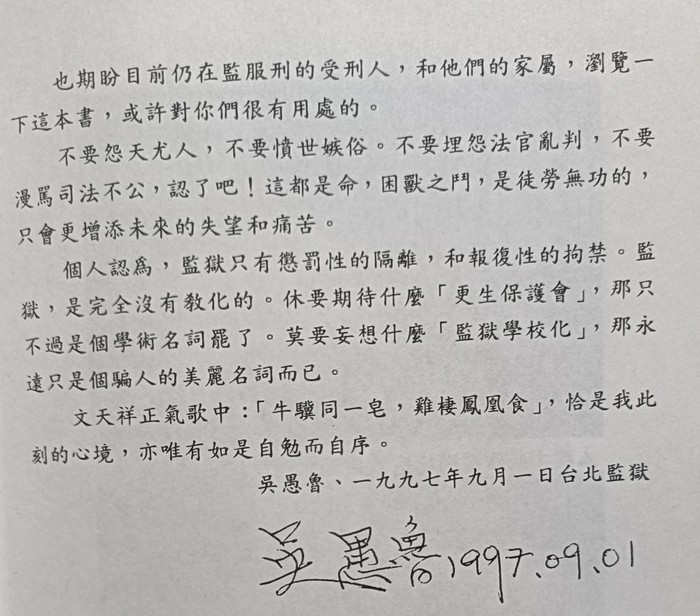 也期盼目前仍在監服刑的受刑人，和他們的家屬，瀏覽一
下這本書，或許對你們很有用處的。
不要怨天尤人，不要憤世嫉俗。不要埋怨法官亂判，不要
漫罵司法不公，認了吧！這都是命，困獸之鬥，是徒勞無功的，
只會更增添未來的失望和痛苦。
個人認為，監獄只有懲罰性的隔離，和報復性的拘禁。監
獄，是完全沒有教化的。休要期待什麼「更生保護會」，那只
不過是個學術名詞罷了。莫要妄想什麼「監獄學校化」，那永
遠只是個騙人的美麗名詞而已。
文天祥正氣歌中：「牛驥同一皂，雞棲鳳凰食」，恰是我此
刻的心境，亦唯有如是自勉而自序。
吳愚魯、一九九七年九月一日台北監獄
吳愚魯1997.09.01